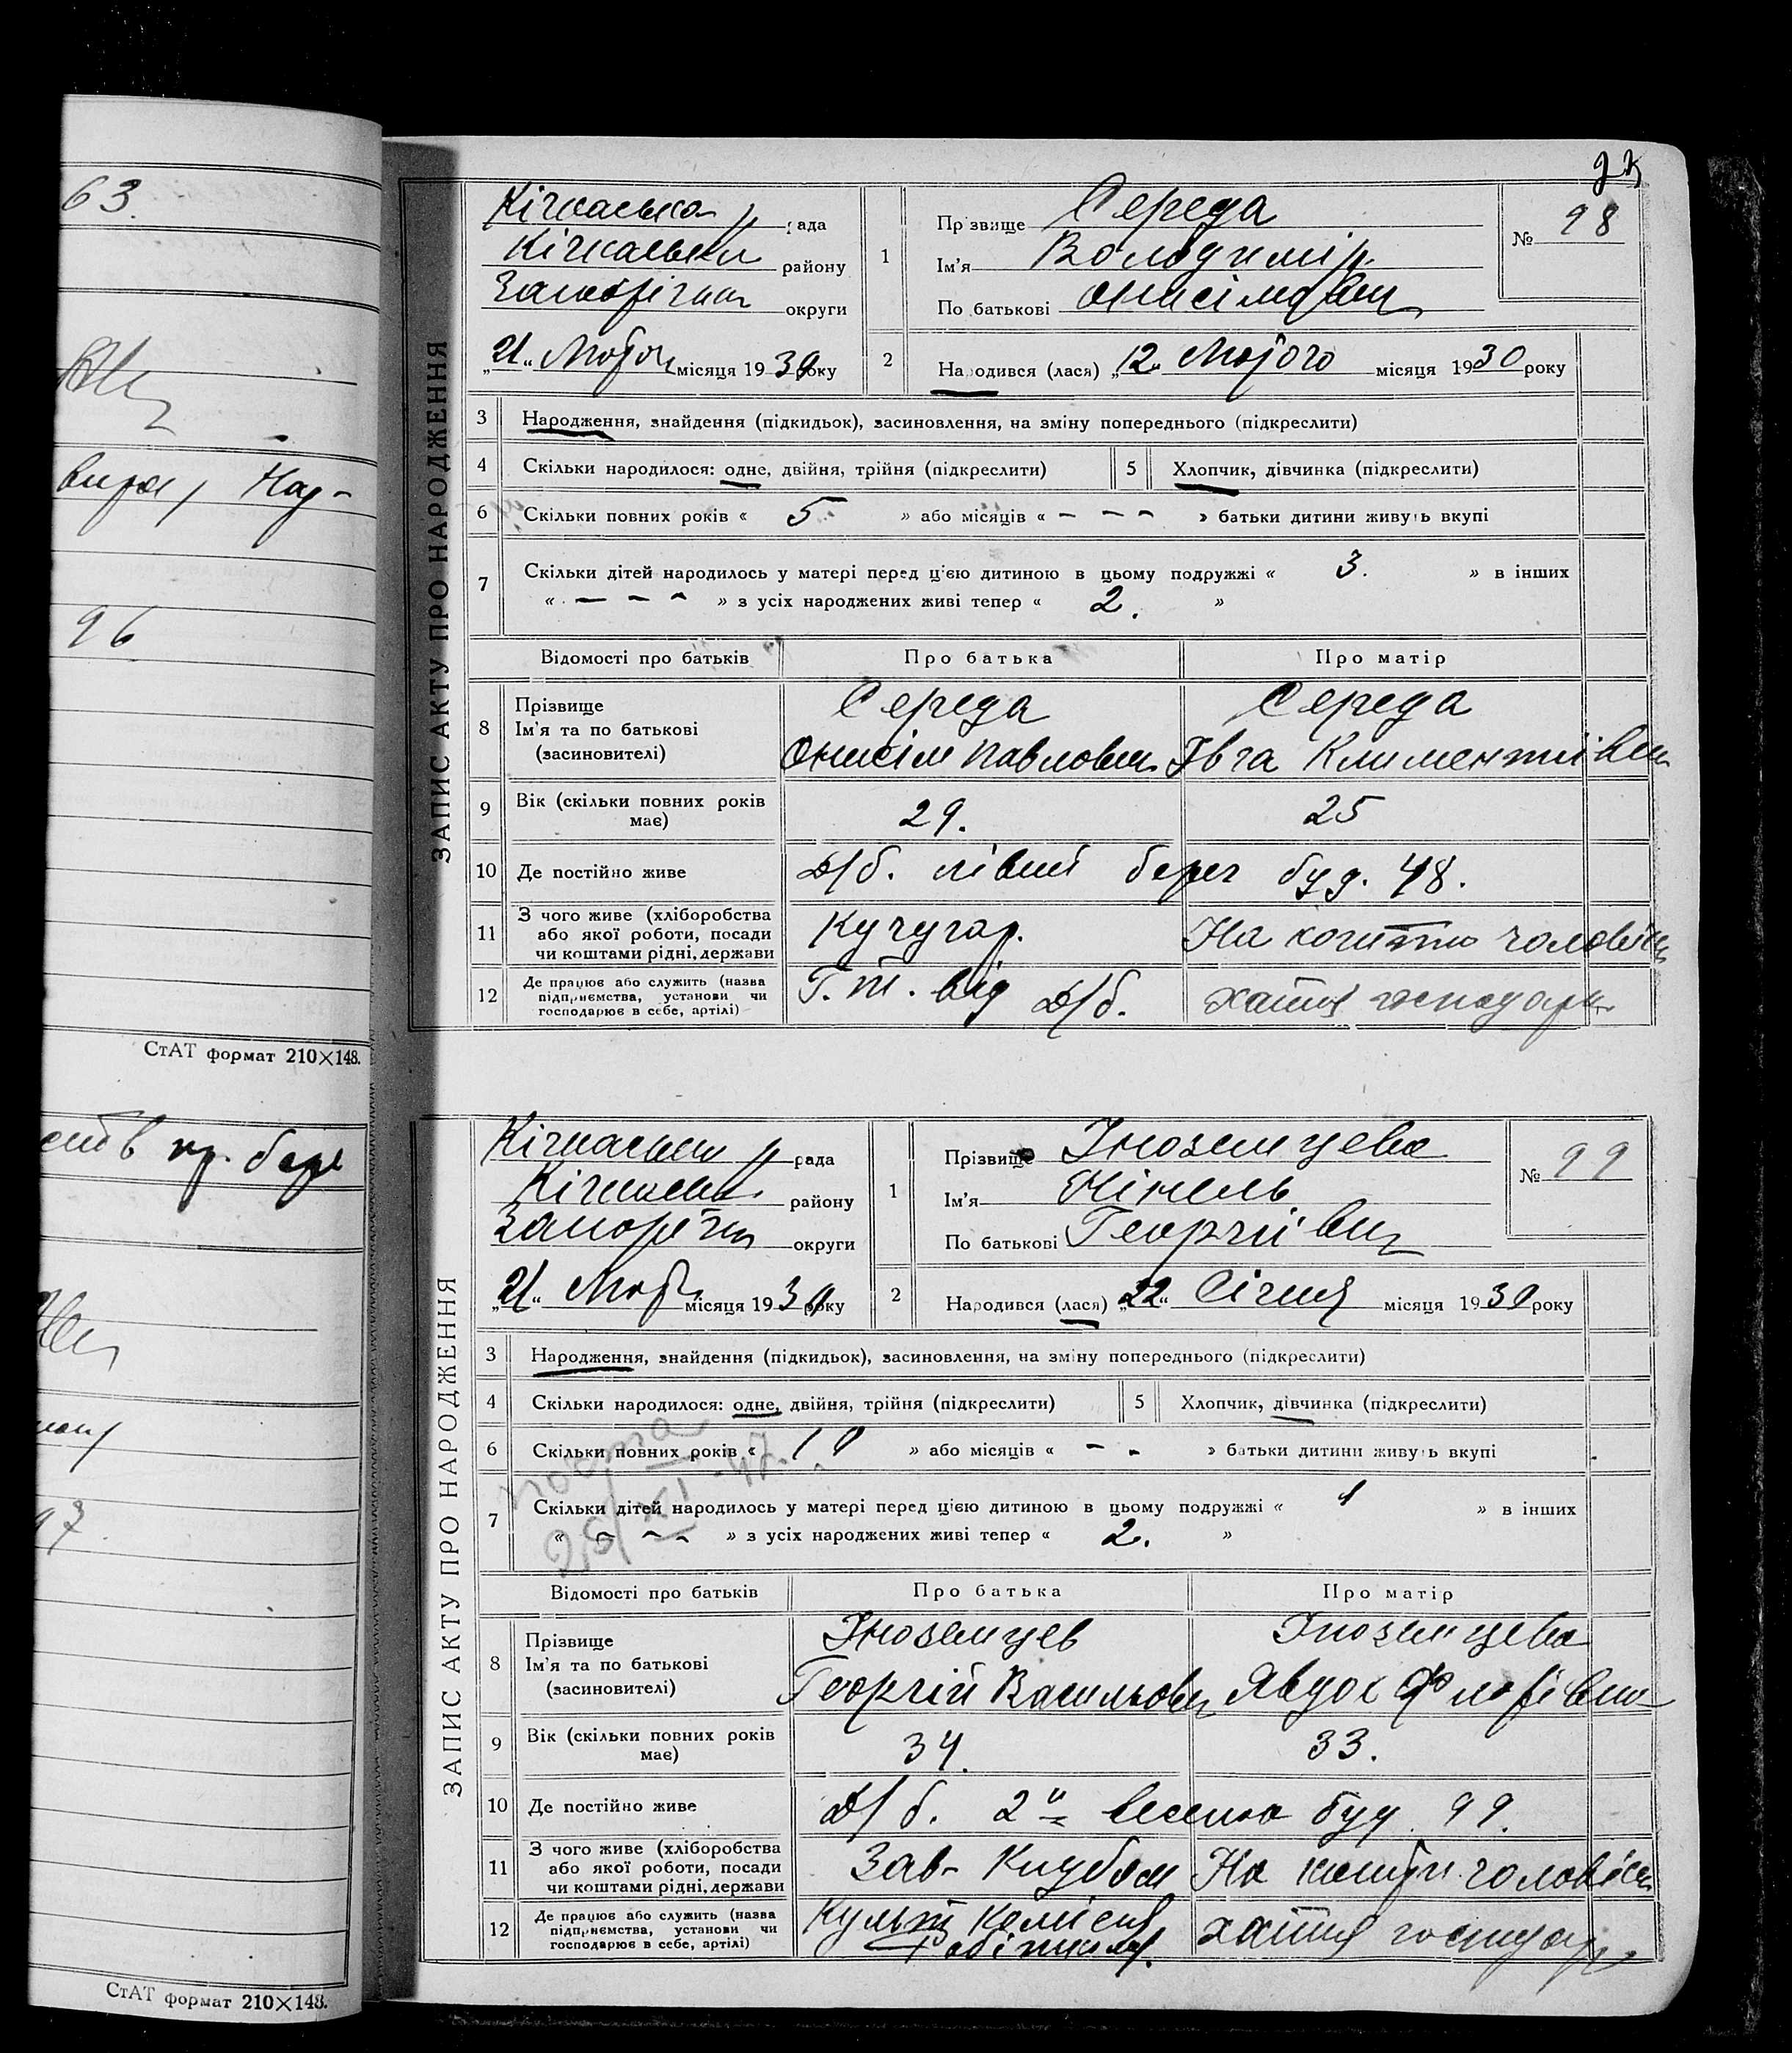 63.
96
СтАТ формат 210×148.
пр. бере
97
СтАТ формат 210×148.
ЗАПИС АКТУ ПРО НАРОДЖЕННЯ
Кічкаська р рада
Кічкаськ району
Запоріжжя округи
„21“ Лютого місяця 1930 року
1
Прізвище Середа
Ім'я Володимір
По батькові Онисімович
№ 98
2
Народився (лася) „12“ Лютого місяця 1930 року
3 Народження, знайдення (підкидьок), засиновлення, на зміну попереднього (підкреслити)
4 Скільки народилося: одне, двійня, трійня (підкреслити) 5 Хлопчик, дівчинка (підкреслити)
6 Скільки повних років « 5 » або місяців « – – – » батьки дитини живуть вкупі
7 Скільки дітей народилось у матері перед цією дитиною в цьому подружжі « 3. » в інших
« – – – » з усіх народжених живі тепер « 2. »
Відомості про батьків Про батька Про матір
8 Прізвище
Ім'я та по батькові
(засиновителі)
Середа Середа
Онисім Павлович Івга Климентіївна
9 Вік (скільки повних років має) 29. 25
10 Де постійно живе Д/б. лівий берег буд. 48.
11 З чого живе (хліборобства
або якої роботи, посади
чи коштами рідні, держави
Кучугар. На кошти чоловіка
12 Де працює або служить (назва
підприємства, установи чи
господарює в себе, артілі)
Г. т. від Д/б. хатня господарка
ЗАПИС АКТУ ПРО НАРОДЖЕННЯ
Кічкаська р рада
Кічкаськ району
Запоріжжя округи
„21“ Лютого місяця 1930 року
1
Прізвище Іноземцева
Ім'я Нінель
По батькові Георгіївна
№ 99
2
Народився (лася) „22“ Січня місяця 1930 року
3 Народження, знайдення (підкидьок), засиновлення, на зміну попереднього (підкреслити)
4 Скільки народилося: одне, двійня, трійня (підкреслити) 5 Хлопчик, дівчинка (підкреслити)
6 Скільки повних років « 10 » або місяців « – – » батьки дитини живуть вкупі
7 Скільки дітей народилось у матері перед цією дитиною в цьому подружжі « 1 » в інших
« – – – » з усіх народжених живі тепер « 2. »
Відомості про батьків Про батька Про матір
8 Прізвище
Ім'я та по батькові
(засиновителі)
Іноземцев Іноземцева
Георгій Васильович Явдох Флорівна
9 Вік (скільки повних років має) 34. 33.
10 Де постійно живе Д/б. 2а веселка буд. 99.
11 З чого живе (хліборобства
або якої роботи, посади
чи коштами рідні, держави
Зав- Клубом На кошти чоловіка
12 Де працює або служить (назва
підприємства, установи чи
господарює в себе, артілі)
Культ Комісія хатня господар